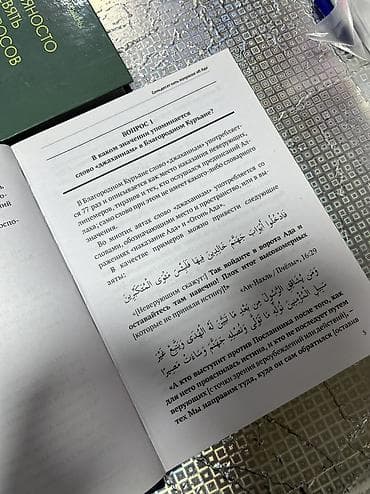 ЯНОСТО
ВЯТЬ
РОСОВ
Семьдесят пять вопросов об Аде
ВОПРОС 1
В каком значении упоминается
слово «джаханнам» в Благородном Куръане?
В Благородном Куръане слово «джаханнам» употребляет-
ся 77 раз и описывается как место наказания неверующих,
лицемеров, тиранов и тех, кто ослушался предписаний Ал-
лаха, само слово при этом не имеет какого-либо словарного
значения.
Во многих аятах слово «джаханнам» употребляется со
словами, обозначающими место и пространство, или в вы-
ражениях «наказание Ада» и «Огонь Ада».
В качестве примеров можно привести следующие
аяты:
فَادْخُلُوا أَبْوَابَ جَهَنَّمَ خَالِدِينَ فِيهَا فَلَبِئْسَ مَثْوَى الْمُتَكَبِّرِينَ
«[Неверующим скажут:] Так войдите в ворота Ада и
оставайтесь там навечно! [Плох итог высокомерных
[которые не приняли истину]!» «Ан-Нахль» / Пчёлы», 16:29
وَمَنْ يُشَاقِقِ الرَّسُولَ مِنْ بَعْدِ مَا تَبَيَّنَ لَهُ الْهُدَى وَيَتَّبِعْ غَيْرَ
سَبِيلِ الْمُؤْمِنِينَ نُوَلِّهِ مَا تَوَلَّى وَنُصْلِهِ جَهَنَّمَ وَسَاءَتْ مَصِيرًا
«А кто выступит против Посланника после того, как
для него прояснилась истина, и кто не последует путем
верующих [с точки зрения вероубеждений или действий],
тех Мы направим туда, куда он сам обратился [оставив
5